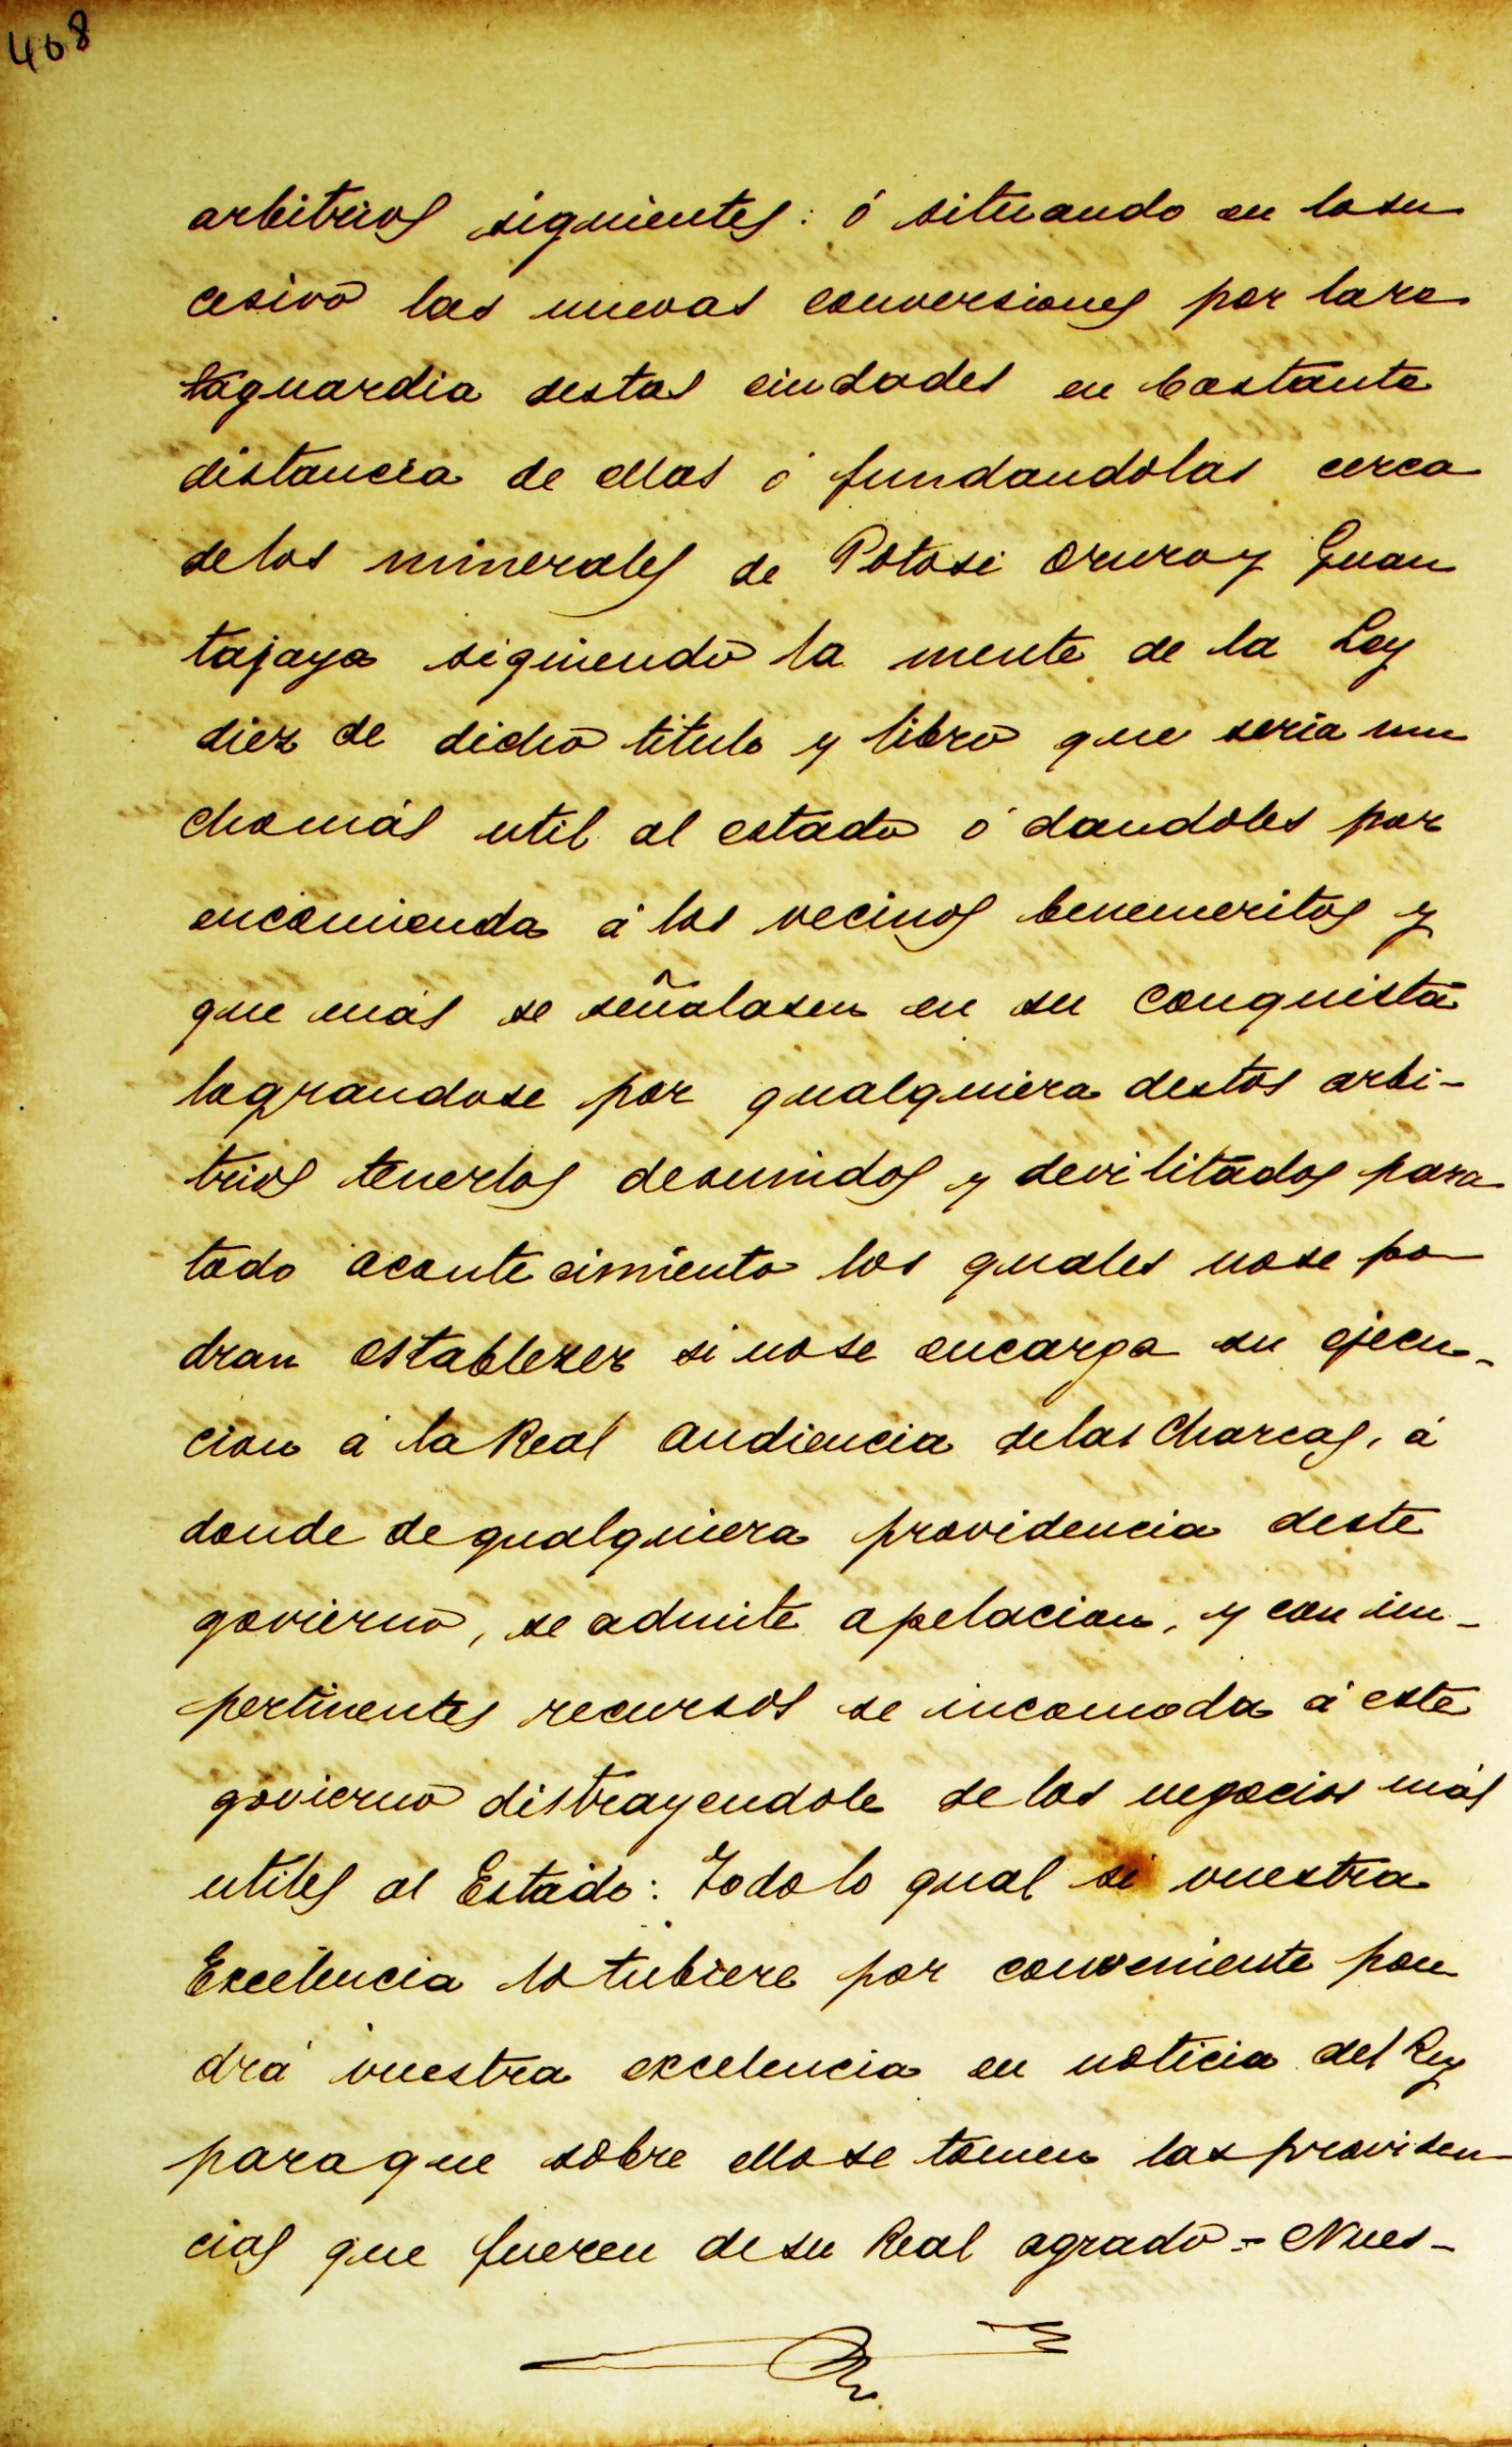 468
arbitrios siguientes: ó situando en lo su
cesivo las nuevas conversiones por la re
taguardia destas ciudades en bastante
distancia de ellas ó fundandolas cerca
de los minerales de Potosi Oruro y Guan
tajaya siguiendo la mente de la Ley
diez de dicho titulo y libro que seria mu
cho más util al estado ó dandoles por
encomienda á los vecinos benemeritos y
que más se señalasen en su conquista
lograndose por qualquiera destos arbi-
trios tenerlos desunidos y devilitados para
todo acontecimiento los quales no se po
dran establezer si no se encarga su ejecu-
cion á la Real audiencia de las Charcas, á
donde de qualquiera providencia deste
govierno, se admite apelacion, y con im-
pertinentes recursos se incomoda á este
govierno distrayendole de los negocios más
utiles al Estado: Todo lo qual si vuestra
Excelencia lo tubiere por conveniente pon
drá vuestra excelencia en noticia del Rey
para que sobre ello se tomen las providen
cias que fueren de su Real agrado = Nues-